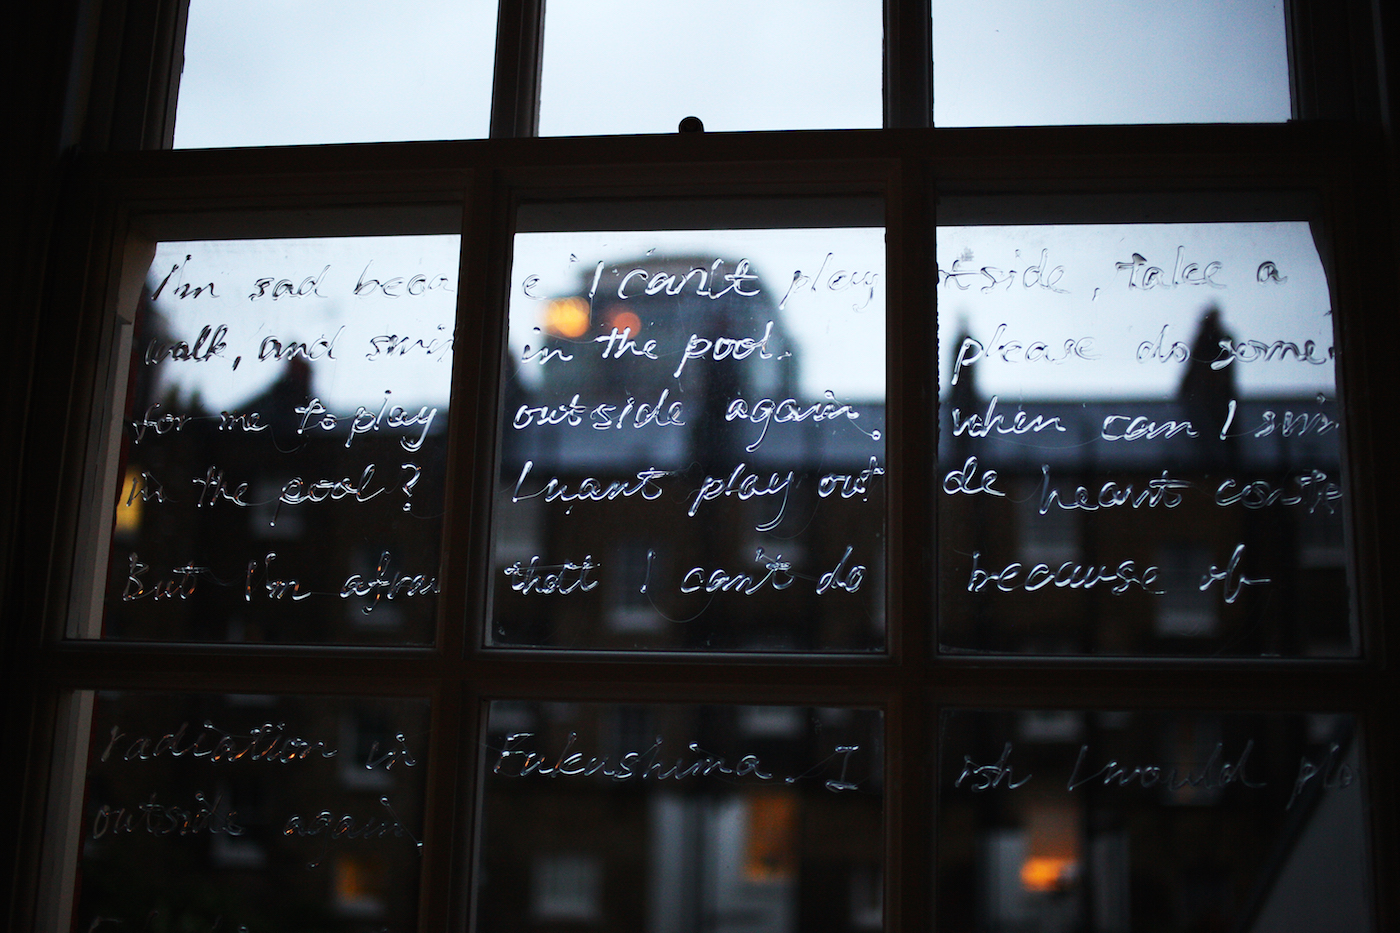 I'm sad beca e I can't play tside, take a
walk, and swim in the pool. please do some
for me to play outside again. when can I swim
in the pool? I want play out de heart conte
But I'm afrai that I can't do because of
radiation in Fukushima. I ish I would pla
outside again.